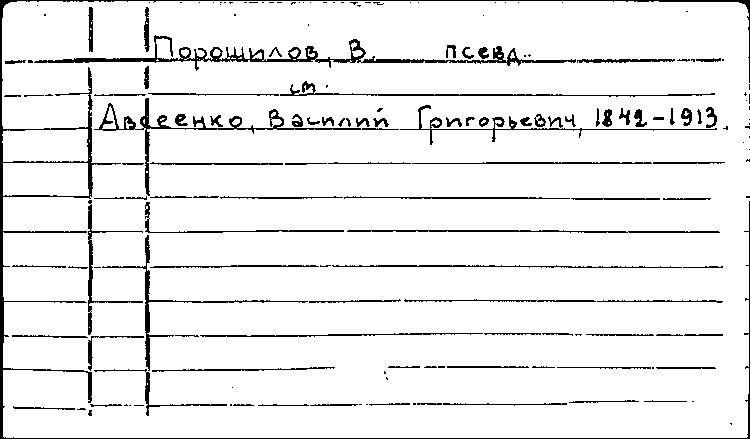 Порошилов, В. псевд.
см.
Авсеенко, Василий Григорьевич, 1842-1913.